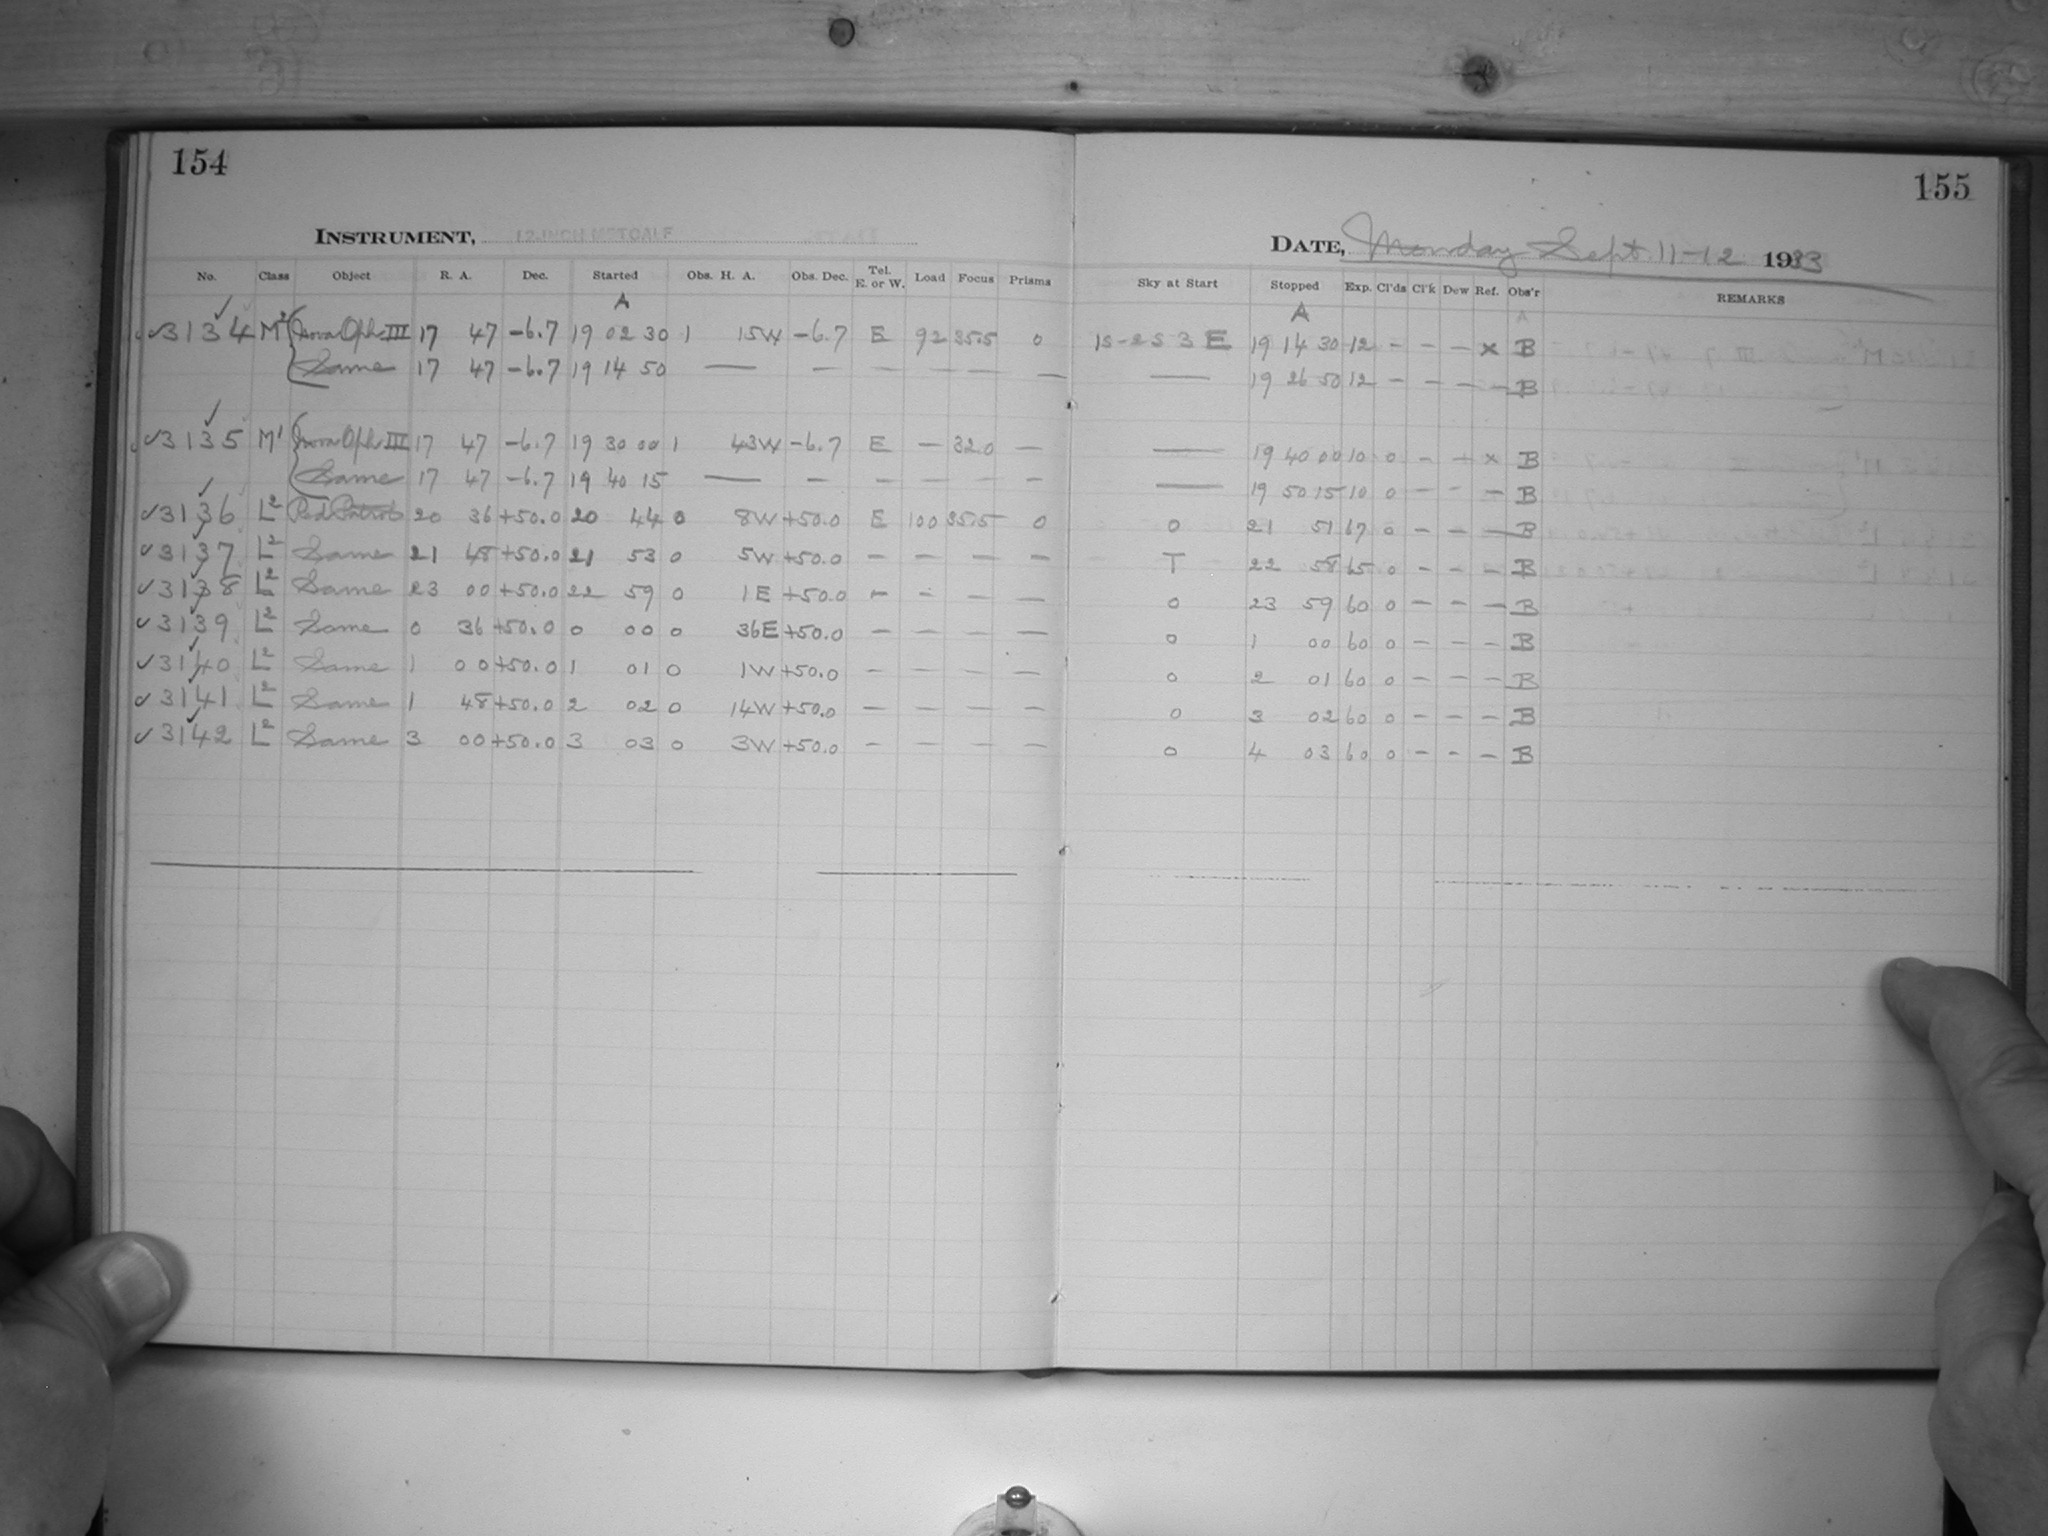 154
INSTRUMENT, 12-INCH METCALF
No. Class Object R. A. Dec. Started Obs. H. A. Obs. Dec. Tel. E. or W. Load Focus Prisms
A
3134 M² Nova Oph. III 17 47 -6.7 19 02 30 1 15W -6.7 E 92 35.5 0
Same 17 47 -6.7 19 14 50 — — — — — —
3135 M¹ Nova Oph III 17 47 -6.7 19 30 00 1 43W -6.7 E — 32.0 —
Same 17 47 -6.7 19 40 15 — — — — — —
3136 L² Red Patrol 20 36 +50.0 20 44 0 8W +50.0 E 100 35.5 0
3137 L² Same 21 48 +50.0 21 53 0 5W +50.0 — — — —
3138 L² Same 23 00 +50.0 22 59 0 1E +50.0 — — — —
3139 L² Same 0 36 +50.0 0 00 0 36E +50.0 — — — —
3140 L² Same 1 00 +50.0 1 01 0 1W +50.0 — — — —
3141 L² Same 1 48 +50.0 2 02 0 14W +50.0 — — — —
3142 L² Same 3 00 +50.0 3 03 0 3W +50.0 — — — —
155
DATE, Monday Sept. 11-12 1933
Sky at Start Stopped Exp. Cl'ds Cl'k Dew Ref. Obs'r REMARKS
A A
1S-2S 3 E 19 14 30 12 — — — x B
— 19 26 50 12 — — — — B
— 19 40 00 10 0 — — x B
— 19 50 15 10 0 — — — B
0 21 51 67 0 — — — B
T 22 58 65 0 — — — B
0 23 59 60 0 — — — B
0 1 00 60 0 — — — B
0 2 01 60 0 — — — B
0 3 02 60 0 — — — B
0 4 03 60 0 — — — B